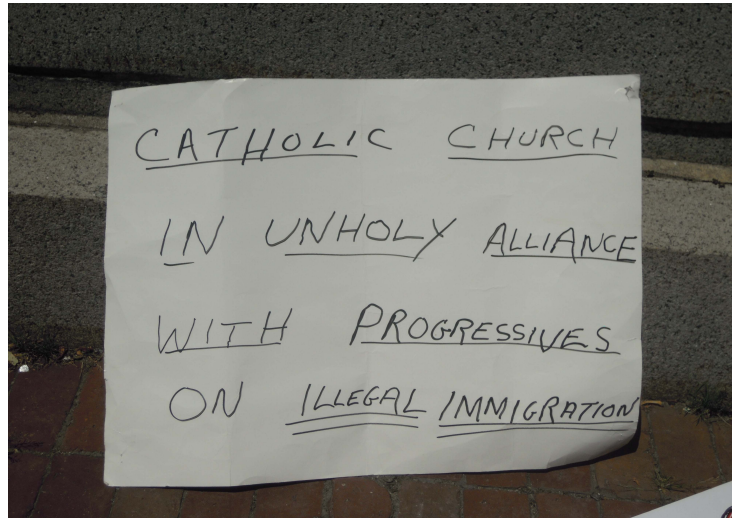 CATHOLIC CHURCH
IN UNHOLY ALLIANCE
WITH PROGRESSIVES
ON ILLEGAL IMMIGRATION